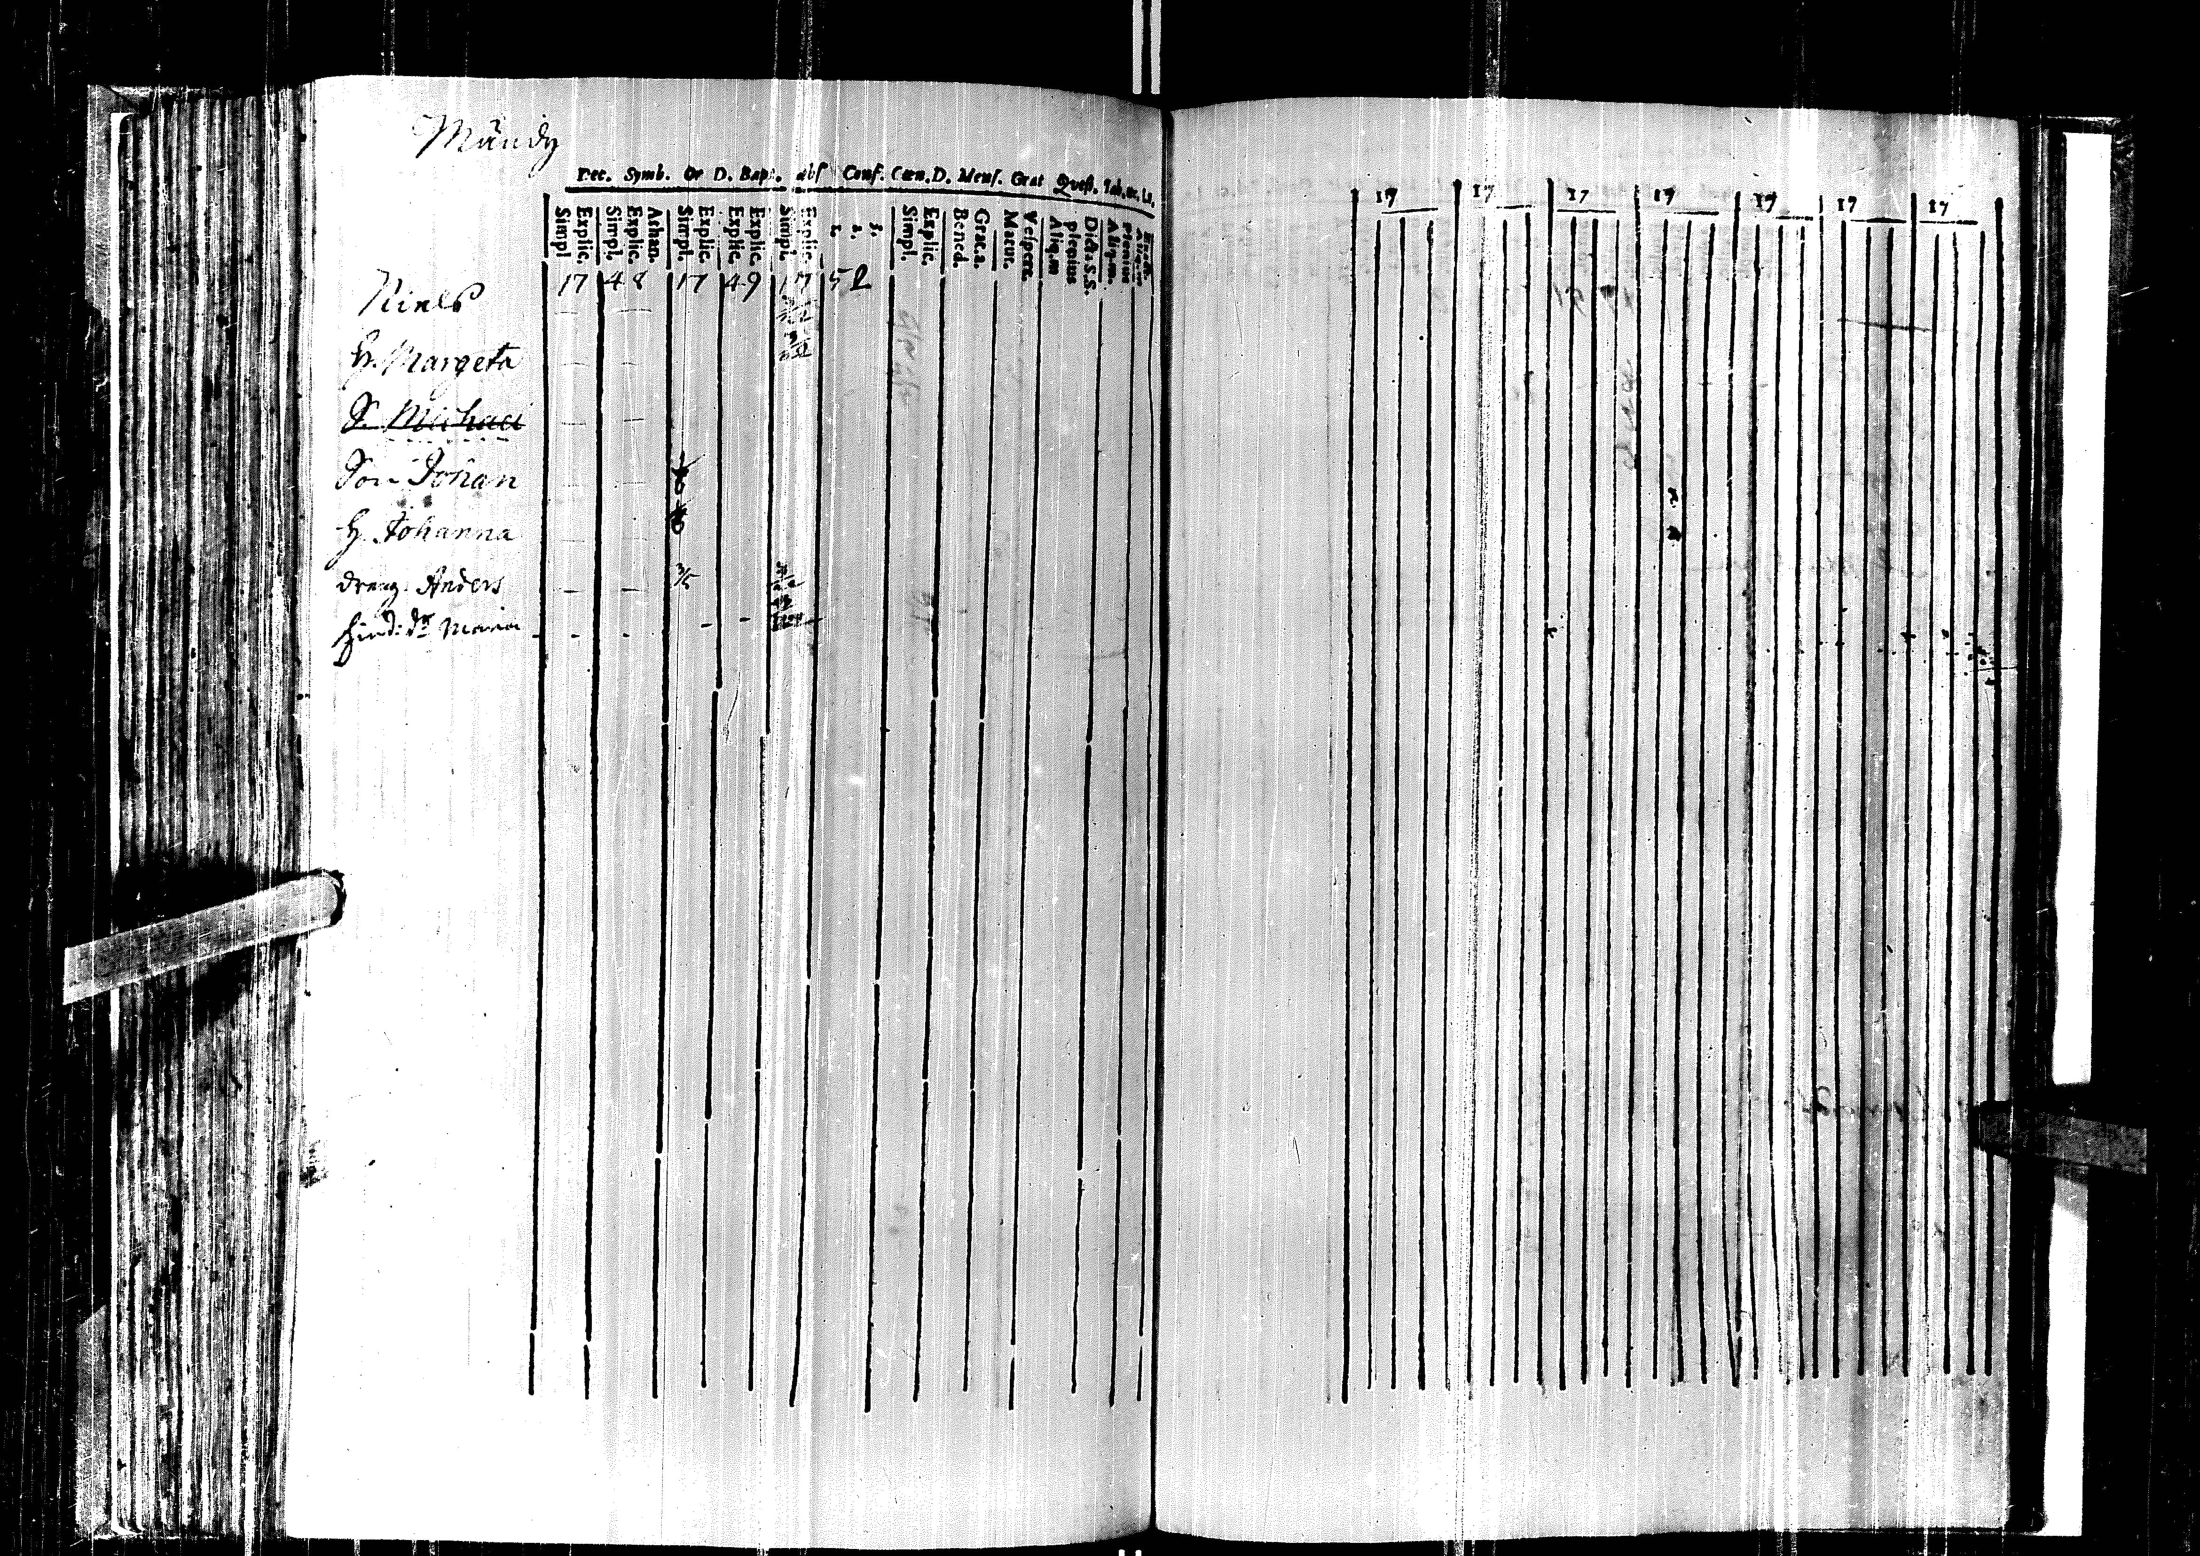 Mündy
Dec. Symb. Or D. Bapt. abs Conf. Cœn. D. Mens. Grat Quest. Tab.
Simpl Explic. Simpl. Explic. Athan. Simpl. Explic. Explic. Explic. Simpl. Explic. 1. 2. 3. Simpl. Explic. Bened. Grat.a. Matut. Vespert. Aliq.m plenius Dict. S.S. Aliq.m. Plenius
17 48 17 49 17 52
Niels
H. Margeta
S. Michael
Son Johan
H. Johanna
dreng. Anders 3/5
Maria
17 17 17 17 17 17 17